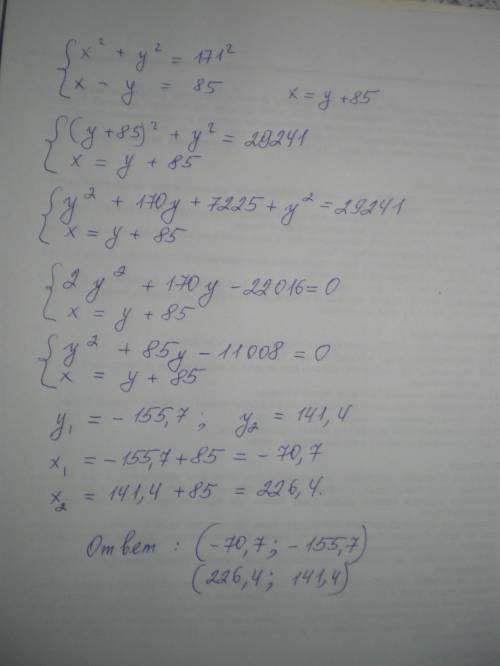 { x² + y² = 171²
x - y = 85    x = y + 85
{ (y + 85)² + y² = 29241
x = y + 85
{ y² + 170y + 7225 + y² = 29241
x = y + 85
{ 2y² + 170y - 22016 = 0
x = y + 85
{ y² + 85y - 11008 = 0
x = y + 85
y₁ = - 155,7 ; y₂ = 141,4
x₁ = -155,7 + 85 = - 70,7
x₂ = 141,4 + 85 = 226,4.
Ответ : (-70,7 ; - 155,7)
(226,4 ; 141,4)